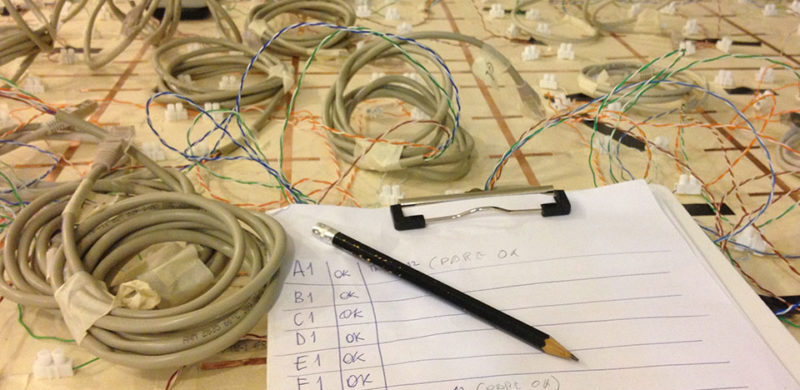 A1 OK 12 (PDRE OK
B1 OK
C1 OK
D1 OK
E1 OK
F1 OK 12 (PDRE OK)